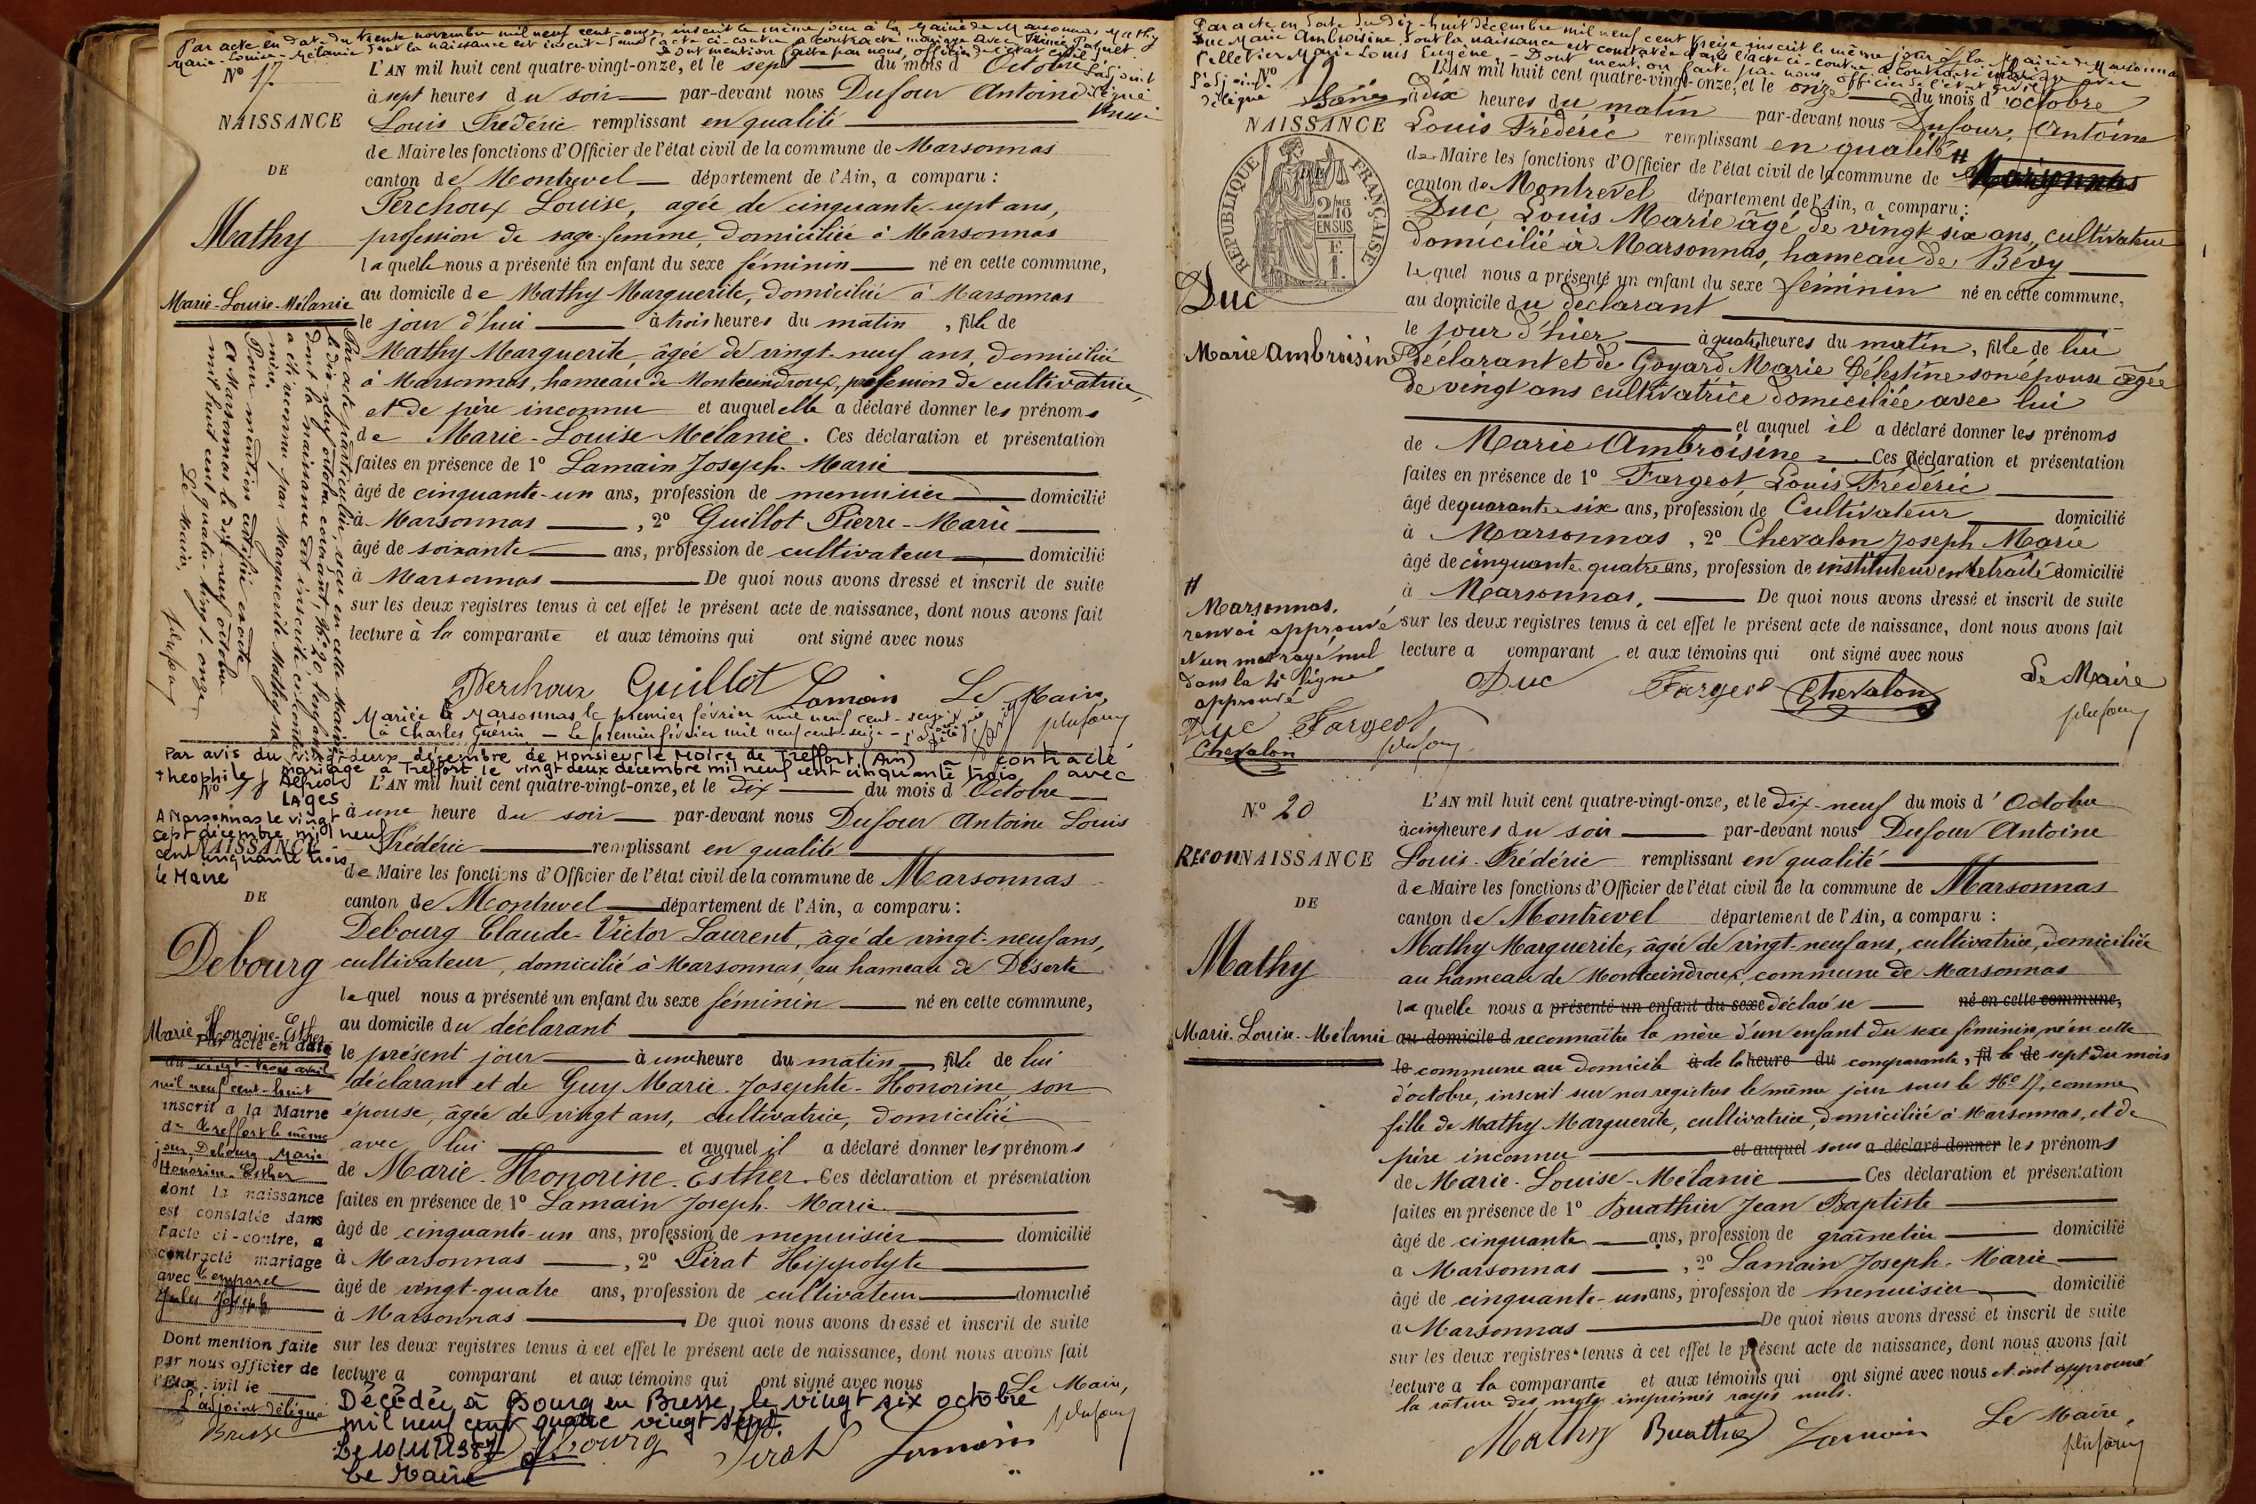 Par acte en date du trente novembre mil neuf cent-onze, inscrit le même jour à la Mairie de Marsonnas, Mathy
Marie-Louise-Mélanie dont la naissance est inscrite dans l'acte ci-contre, a contracté mariage avec
Dont mention faite par nous, officier de l'état civil
L'adjoint
délégué
N° 17
NAISSANCE
DE
Mathy
Marie-Louise-Mélanie
L'AN mil huit cent quatre-vingt-onze, et le sept du mois d'Octobre
à sept heures du soir par-devant nous Dufour Antoine
Louis Frédéric remplissant en qualité
de Maire les fonctions d'Officier de l'état civil de la commune de Marsonnas
canton de Montrevel département de l'Ain, a comparu :
Perchoux Louise, agée de cinquante-sept ans,
profession de sage-femme, domiciliée à Marsonnas
laquelle nous a présenté un enfant du sexe féminin né en cette commune,
au domicile de Mathy Marguerite, domiciliée à Marsonnas
le jour d'hui à trois heures du matin, fille de
Mathy Marguerite, âgée de vingt-neuf ans, domiciliée
à Marsonnas, hameau de Montceindroux, profession de cultivatrice,
et de père inconnu et auquel elle a déclaré donner les prénoms
de Marie-Louise Mélanie. Ces déclaration et présentation
faites en présence de 1° Lamain Joseph-Marie
âgé de cinquante-un ans, profession de menuisier domicilié
à Marsonnas, 2° Guillot Pierre-Marie
âgé de soixante ans, profession de cultivateur domicilié
à Marsonnas De quoi nous avons dressé et inscrit de suite
sur les deux registres tenus à cet effet le présent acte de naissance, dont nous avons fait
lecture à la comparante et aux témoins qui ont signé avec nous
Perchoux Guillot Lamain Le Maire,
Dufour
Par acte particulier, reçu en cette Mairie
le dix-neuf octobre courant, N° 20, l'enfant
dont la naissance est inscrite ci-contre
a été reconnu par Marguerite Mathy sa
mère.
Pour mention certifiée exacte
A Marsonnas le dix-neuf octobre
mil huit cent quatre-vingt-onze
Le Maire,
Dufour
Mariée à Marsonnas le premier février mil neuf cent-seize
à Charles Guérin — Le premier février mil neuf cent-seize
Par avis du vingt-deux décembre de Monsieur le Maire de Treffort (Ain) a contracté
mariage à Treffort le vingt deux décembre mil neuf cent cinquante trois avec
Théophile Alfred
LAGES
A Marsonnas le vingt
sept décembre mil neuf
cent cinquante trois
le Maire
N°
NAISSANCE
DE
Debourg
Marie-Honorine-Esther
L'AN mil huit cent quatre-vingt-onze, et le dix du mois d'Octobre
à une heure du soir par-devant nous Dufour Antoine Louis
Frédéric remplissant en qualité
de Maire les fonctions d'Officier de l'état civil de la commune de Marsonnas
canton de Montrevel département de l'Ain, a comparu :
Debourg Claude-Victor Laurent, âgé de vingt-neuf ans,
cultivateur, domicilié à Marsonnas, au hameau de Déserte
lequel nous a présenté un enfant du sexe féminin né en cette commune,
au domicile du déclarant
le présent jour à une heure du matin fille de lui
déclarant et de Guy Marie-Josephte-Honorine, son
épouse, âgée de vingt ans, cultivatrice, domiciliée
avec lui et auquel il a déclaré donner les prénoms
de Marie-Honorine-Esther. Ces déclaration et présentation
faites en présence de 1° Lamain Joseph-Marie
âgé de cinquante-un ans, profession de menuisier domicilié
à Marsonnas, 2° Pirat Hippolyte
âgé de vingt-quatre ans, profession de cultivateur domicilié
à Marsonnas De quoi nous avons dressé et inscrit de suite
sur les deux registres tenus à cet effet le présent acte de naissance, dont nous avons fait
lecture a comparant et aux témoins qui ont signé avec nous
Le Maire,
Dufour
Par acte en date
du vingt-trois avril
mil neuf cent-huit
inscrit à la Mairie
de Treffort le même
jour, Debourg Marie
Honorine-Esther
dont la naissance
est constatée dans
l'acte ci-contre, a
contracté mariage
avec
Jules Joseph
Dont mention faite
par nous officier de
l'état civil le
L'adjoint délégué
Décédée à Bourg en Bresse, le vingt six octobre
mil neuf cent quatre vingt sept.
Le 10/11/1987
Le Maire
Debourg Pirat Lamain
Par acte en date du dix-huit décembre mil neuf cent treize inscrit le même jour à la Mairie de Marsonnas
Duc Marie Ambroisine dont la naissance est constatée dans l'acte ci-contre a contracté mariage avec
Pelletier Marie Louis Eugène. - Dont mention faite par nous officier de l'état civil
L'adjoint
délégué
N° 19
NAISSANCE
DE
RÉPUBLIQUE FRANÇAISE
2/10 EN SUS
Duc
Marie Ambroisine
L'AN mil huit cent quatre-vingt-onze, et le onze du mois d'octobre
à dix heures du matin par-devant nous Dufour, Antoine
Louis Frédéric remplissant en qualité
de Maire les fonctions d'Officier de l'état civil de la commune de Marsonnas
canton de Montrevel département de l'Ain, a comparu :
Duc, Louis Marie âgé de vingt six ans, cultivateur
domicilié à Marsonnas, hameau de Bévy
lequel nous a présenté un enfant du sexe féminin né en cette commune,
au domicile du déclarant
le jour d'hier à quatre heures du matin, fille de lui
déclarant et de Goyard Marie Célestine son épouse âgée
de vingt ans cultivatrice domiciliée avec lui
et auquel il a déclaré donner les prénoms
de Marie Ambroisine Ces déclaration et présentation
faites en présence de 1° Fargeot, Louis Frédéric
âgé de quarante six ans, profession de Cultivateur domicilié
à Marsonnas, 2° Chevalon Joseph Marie
âgé de cinquante quatre ans, profession de instituteur en retraite domicilié
à Marsonnas. De quoi nous avons dressé et inscrit de suite
sur les deux registres tenus à cet effet le présent acte de naissance, dont nous avons fait
lecture a comparant et aux témoins qui ont signé avec nous
Duc Fargeot Chevalon Le Maire
Dufour
Marsonnas.
renvoi approuvé
et un mot rayé nul
dans la 4e ligne
approuvé
Duc Fargeot
Chevalon Dufour
N° 20
RECONNAISSANCE
DE
Mathy
Marie-Louise-Mélanie
L'AN mil huit cent quatre-vingt-onze, et le dix-neuf du mois d'Octobre
à cinq heures du soir par-devant nous Dufour Antoine
Louis-Frédéric remplissant en qualité
de Maire les fonctions d'Officier de l'état civil de la commune de Marsonnas
canton de Montrevel département de l'Ain, a comparu :
Mathy Marguerite, âgée de vingt-neuf ans, cultivatrice, domiciliée
au hameau de Montceindroux, commune de Marsonnas
laquelle nous a présenté un enfant du sexe déclaré se né en cette commune,
au domicile d reconnaître la mère d'un enfant du sexe féminin, né en cette
le commune au domicile à de la heure du comparante, fil le de sept du mois
d'octobre, inscrit sur nos registres le même jour sous le N° 17, comme
fille de Mathy Marguerite, cultivatrice, domiciliée à Marsonnas, et de
père inconnu et auquel sous a déclaré donner les prénoms
de Marie-Louise-Mélanie Ces déclaration et présentation
faites en présence de 1° Buathier Jean Baptiste
âgé de cinquante ans, profession de grainetier domicilié
a Marsonnas, 2° Lamain Joseph-Marie
âgé de cinquante-un ans, profession de menuisier domicilié
a Marsonnas De quoi nous avons dressé et inscrit de suite
sur les deux registres tenus à cet effet le présent acte de naissance, dont nous avons fait
lecture a la comparante et aux témoins qui ont signé avec nous et ont approuvé
la rature des mots imprimés rayés nuls.
Mathy Buathier Lamain Le Maire,
Dufour